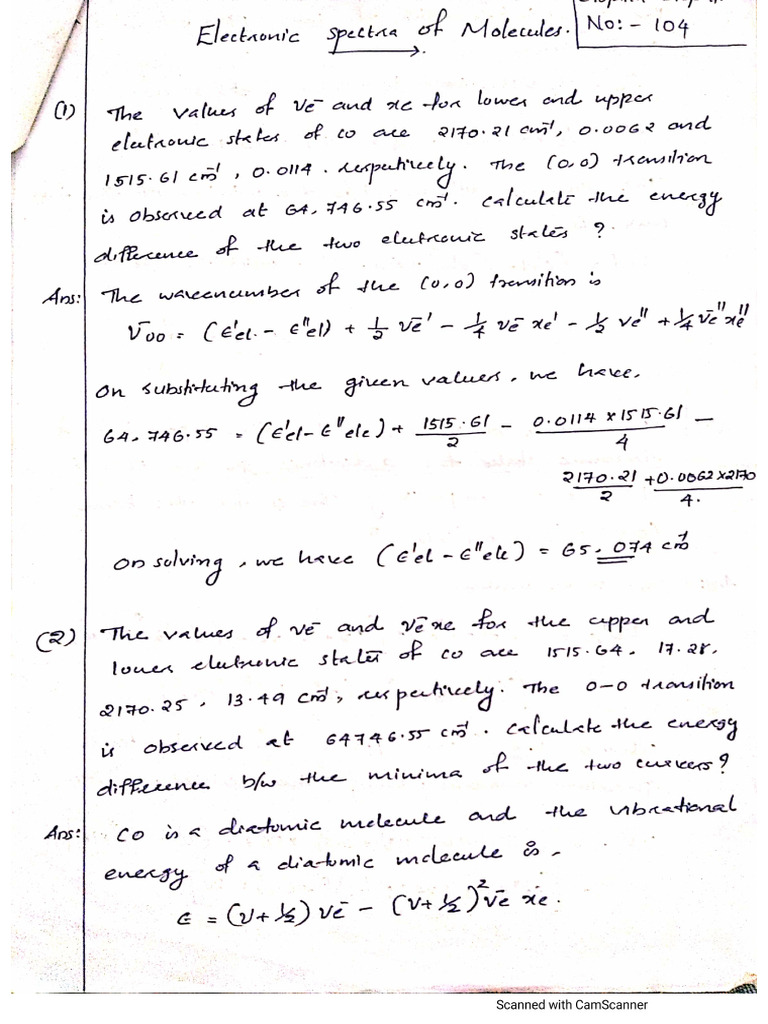 Electronic spectra of Molecules.
No:- 104
(1) The values of νē and xe for lower and upper
electronic states of co are 2170.21 cm⁻¹, 0.0062 and
1515.61 cm⁻¹, 0.0114. respectively. The (0,0) transition
is observed at 64,746.55 cm⁻¹. Calculate the energy
difference of the two electronic states ?
Ans: The wavenumber of the (0,0) transition is
ν̄00 = (ϵ'el. - ϵ"el) + 1/2 νē' - 1/4 νē xe' - 1/2 νe" + 1/4 νē" xe"
On substituting the given values, we have,
64,746.55 = (ϵ'el - ϵ"ele) + 1515.61/2 - 0.0114 x 1515.61/4 -
2170.21/2 + 0.0062 x 2170/4.
On solving, we have (ϵ'el - ϵ"ele) = 65,074 cm⁻¹
(2) The values of νē and νē xe for the upper and
lower electronic states of co are 1515.64, 17.28,
2170.25, 13.49 cm⁻¹, respectively. The 0-0 transition
is observed at 64746.55 cm⁻¹. Calculate the energy
difference b/w the minima of the two curves?
Ans: CO is a diatomic molecule and the vibrational
energy of a diatomic molecule is,
ϵ = (ν + 1/2) νē - (ν + 1/2)² νē xe.
Scanned with CamScanner